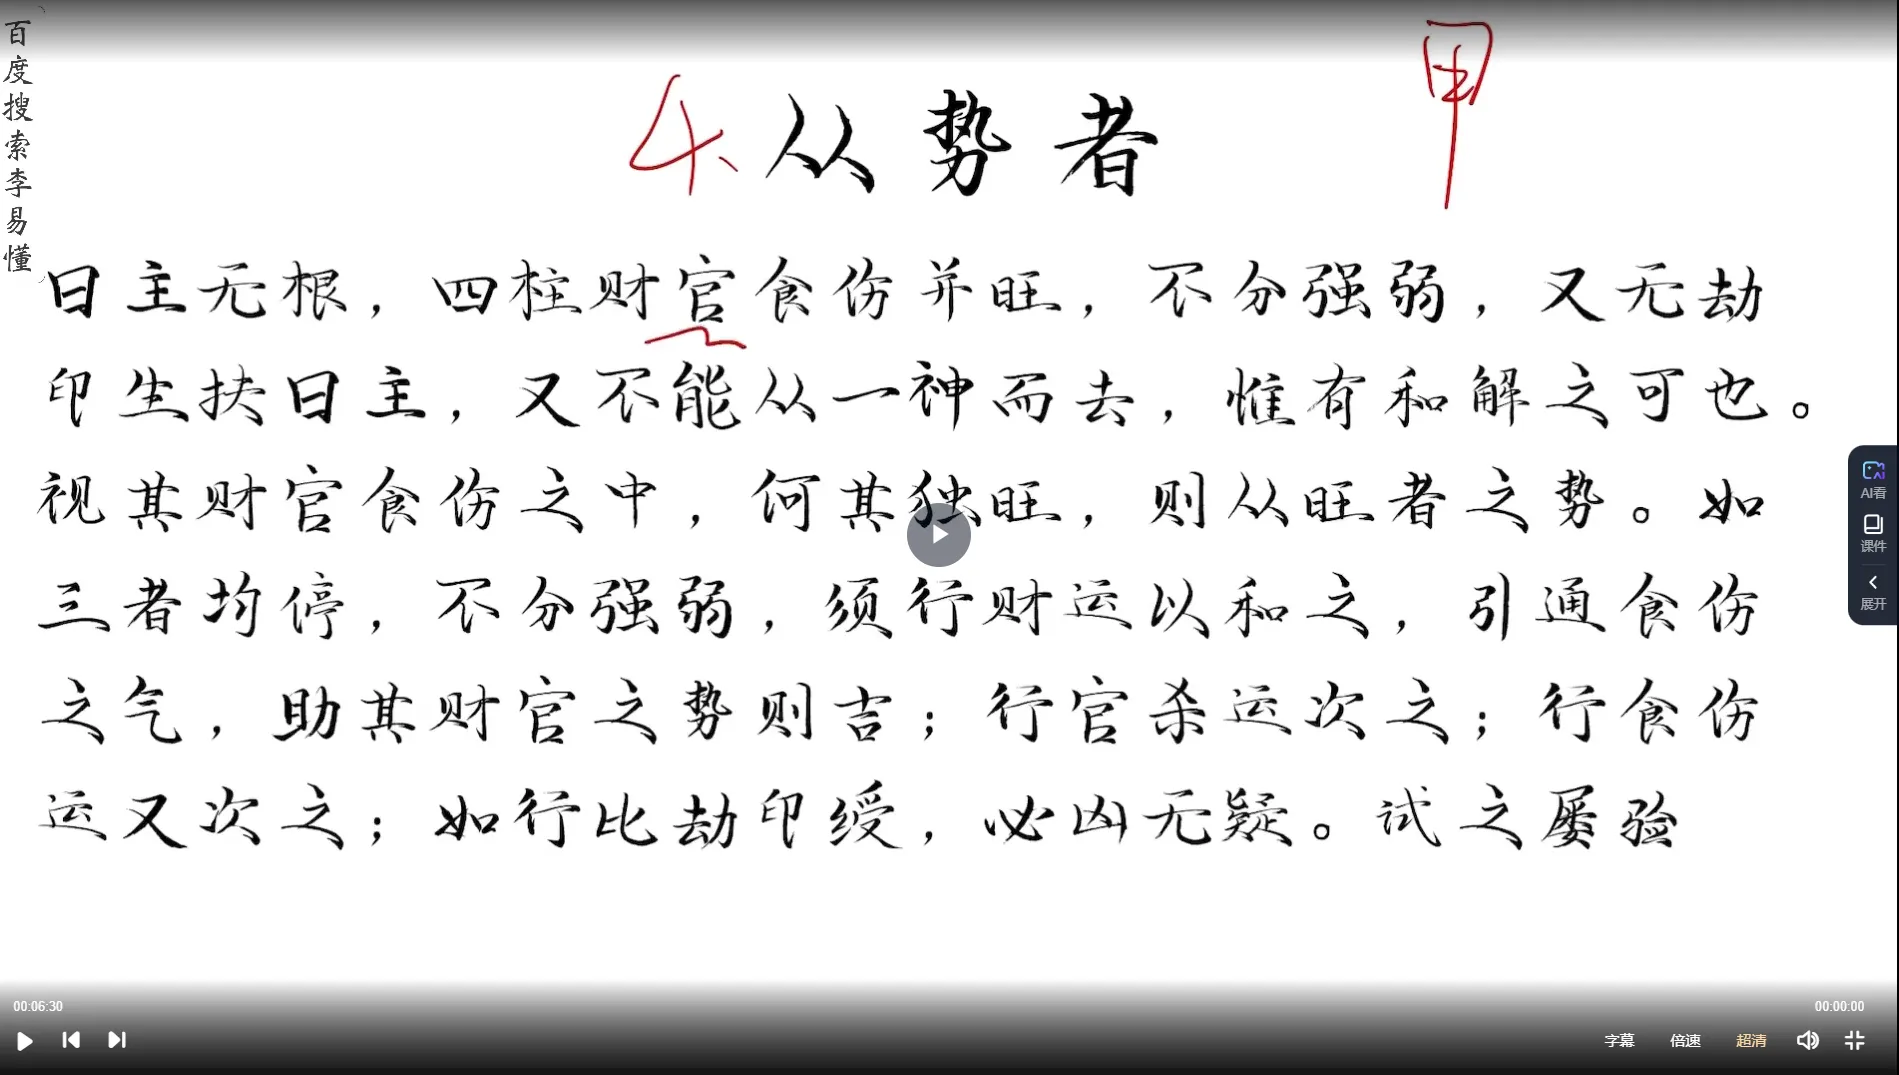 百度搜索李易懂
4、从势者
甲
日主无根，四柱财官食伤并旺，不分强弱，又无劫
印生扶日主，又不能从一神而去，惟有和解之可也。
视其财官食伤之中，何其独旺，则从旺者之势。如
三者均停，不分强弱，须行财运以和之，引通食伤
之气，助其财官之势则吉；行官杀运次之；行食伤
运又次之；如行比劫印绶，必凶无疑。试之屡验
AI看
课件
展开
00:06:30
00:00:00
字幕 倍速 超清